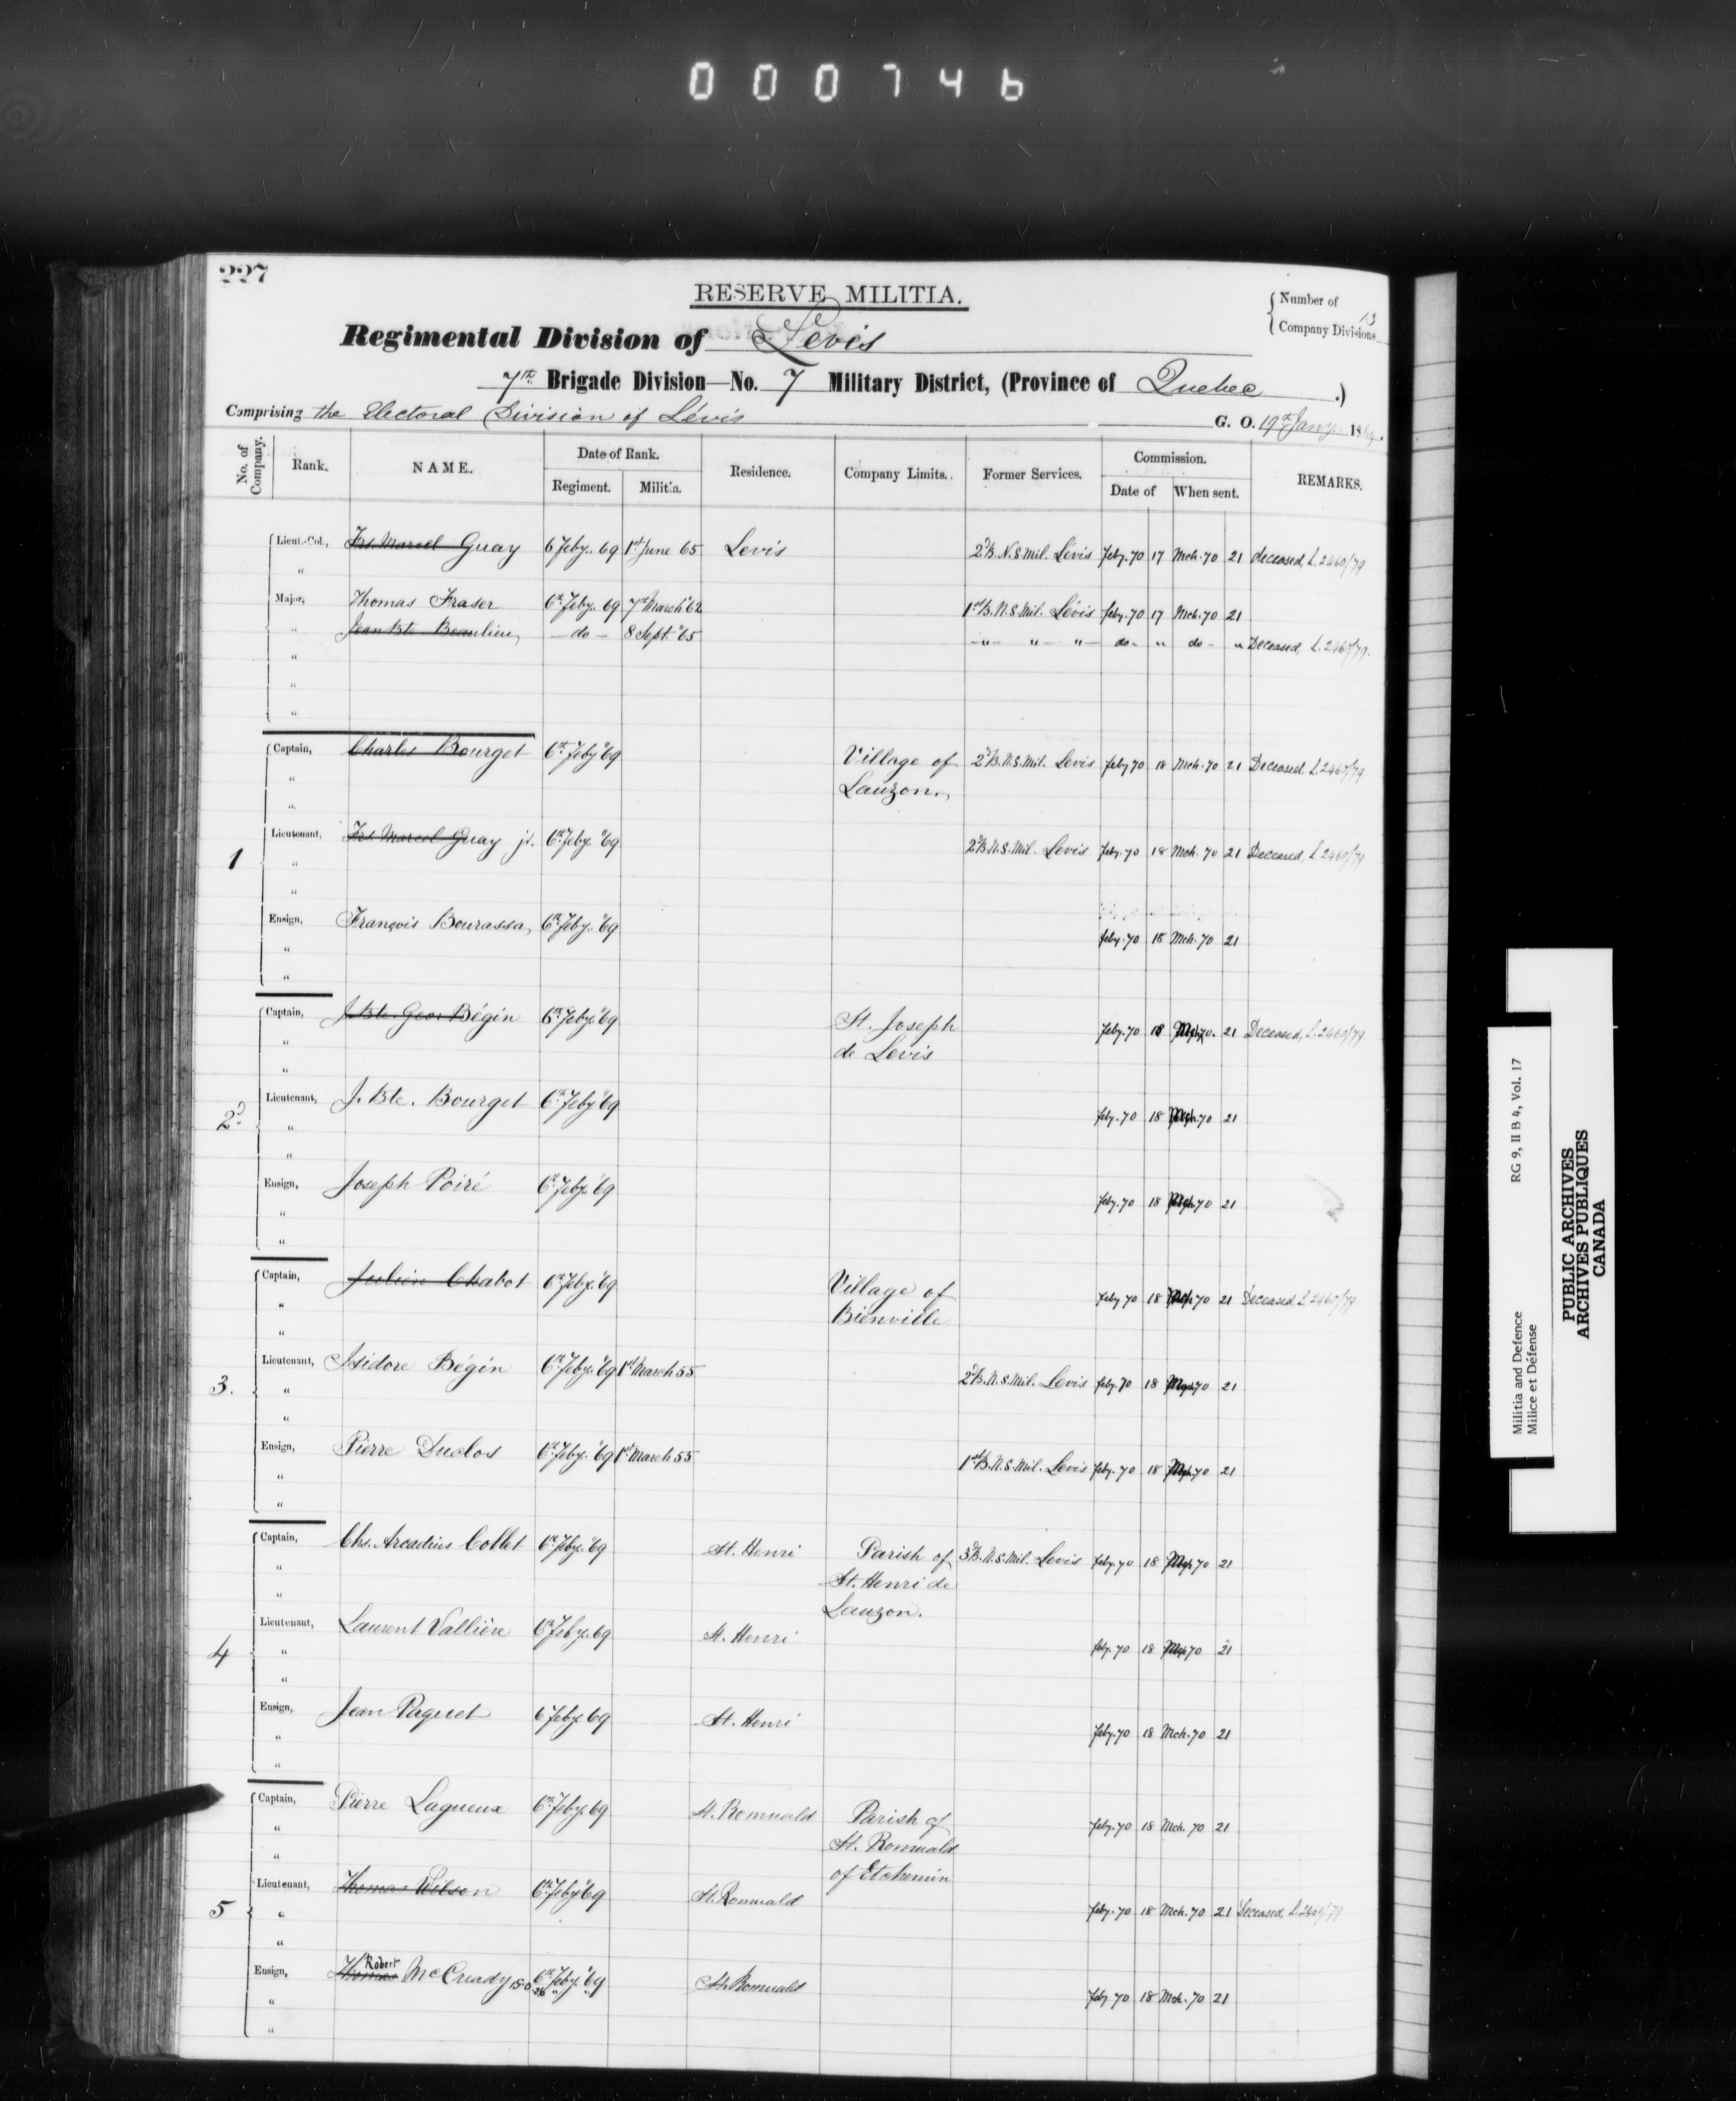 000746
227
RESERVE MILITIA.
Number of Company Divisions 13
Regimental Division of Levis
7th Brigade Division—No. 7 Military District, (Province of Quebec.)
Comprising the Electoral Division of Lévis G. O. 19th Jany. 1869.
No. of Company. Rank. NAME. Date of Rank. Residence. Company Limits. Former Services. Commission. REMARKS.
Regiment. Militia. Date of When sent.
Lieut.-Col., Frs. Marcel Guay 6 Feby. 69 1st June 65 Levis 2d B. N.S. Mil. Lévis Feby. 70 17 Mch. 70 21 deceased, L. 2460/79
"
Major, Thomas Fraser 6th Feby. 69 7th March "62 1st B. N.S. Mil. Lévis Feby. 70 17 Mch. 70 21
" Jean Bte Beaulieu, — do — 8 Sept. "65 — " — " — " — do - " do - " Deceased, L. 2460/79.
"
"
"
Captain, Charles Bourget 6th Feby "69 Village of 2d B. N.S. Mil. Levis Feby 70 18 Mch. 70 21 Deceased, L. 2460/79
" Lauzon.
"
1 Lieutenant, Frs. Marcel Guay jr. 6th Feby. "69 2d B. N.S. Mil. Levis Feby. 70 18 Mch. 70 21 Deceased, L. 2460/79
"
"
Ensign, François Bourassa, 6th Feby. "69 Feby. 70 18 Mch. 70 21
"
"
Captain, J. Bte. Geo. Bégin 6th Feby. "69 St. Joseph Feby. 70 18 Mch 70. 21 Deceased, L. 2460/79
" de Levis
"
2d Lieutenant, J. Bte. Bourget 6th Feby "69 Feby. 70 18 Mch 70 21
"
"
Ensign, Joseph Poiré 6th Feby. "69 Feby. 70 18 Mch 70 21
"
"
Captain, Julien Chabot 6th Feby. "69 Village of Feby 70 18 Mch 70 21 Deceased, L. 2460/79
" Bienville
"
3. Lieutenant, Isidore Bégin 6th Feby. "69 1st March 55 2d B. N.S. Mil. Levis Feby. 70 18 Mch 70 21
"
"
Ensign, Pierre Duclos 6th Feby. "69 1st March 55 1st B. N.S. Mil. Levis Feby. 70 18 Mch 70 21
"
"
Captain, Chs. Arcadius Collet 6th Feby. "69 St. Henri Parish of 3d B. N.S. Mil. Levis Feby. 70 18 Mch 70 21
" St. Henri de
" Lauzon.
4 Lieutenant, Laurent Vallière 6th Feby. 69 St. Henri Feby. 70 18 Mch 70 21
"
"
Ensign, Jean Paquet 6 Feby. "69 St. Henri Feby. 70 18 Mch. 70 21
"
"
Captain, Pierre Lagueux 6th Feby. 69 St. Romuald Parish of Feby. 70 18 Mch. 70 21
" St. Romuald
" of Etchemin
5 Lieutenant, Thomas Wilson 6th Feby "69 St. Romuald Feby. 70 18 Mch. 70 21 Deceased, L. 2460/79
"
"
Ensign, Thomas Robert McCready 6th Feby. "69 St. Romuald Feby 70 18 Mch. 70 21
"
"
Militia and Defence RG 9, II B 4, Vol. 17
Milice et Défense
PUBLIC ARCHIVES
ARCHIVES PUBLIQUES
CANADA